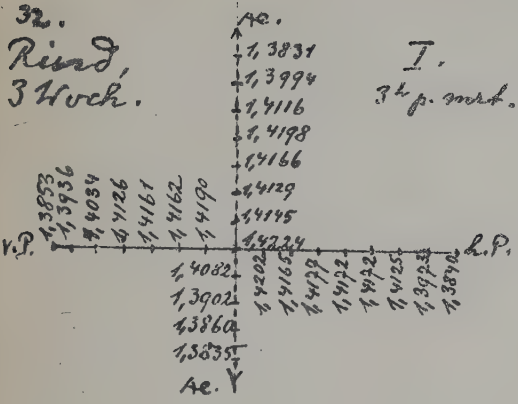 32.
Rind,
3 Woch.
I.
3h p. mrt.
Ae.
1,3831
1,3994
1,4116
1,4198
1,4166
1,4129
1,4145
1,4224
v.P.
1,3853
1,3936
1,4034
1,4126
1,4161
1,4162
1,4190
h.P.
1,4202
1,4165
1,4177
1,4172
1,4172
1,4125
1,3973
1,3840
1,4082
1,3902
1,3860
1,3835
Ae.